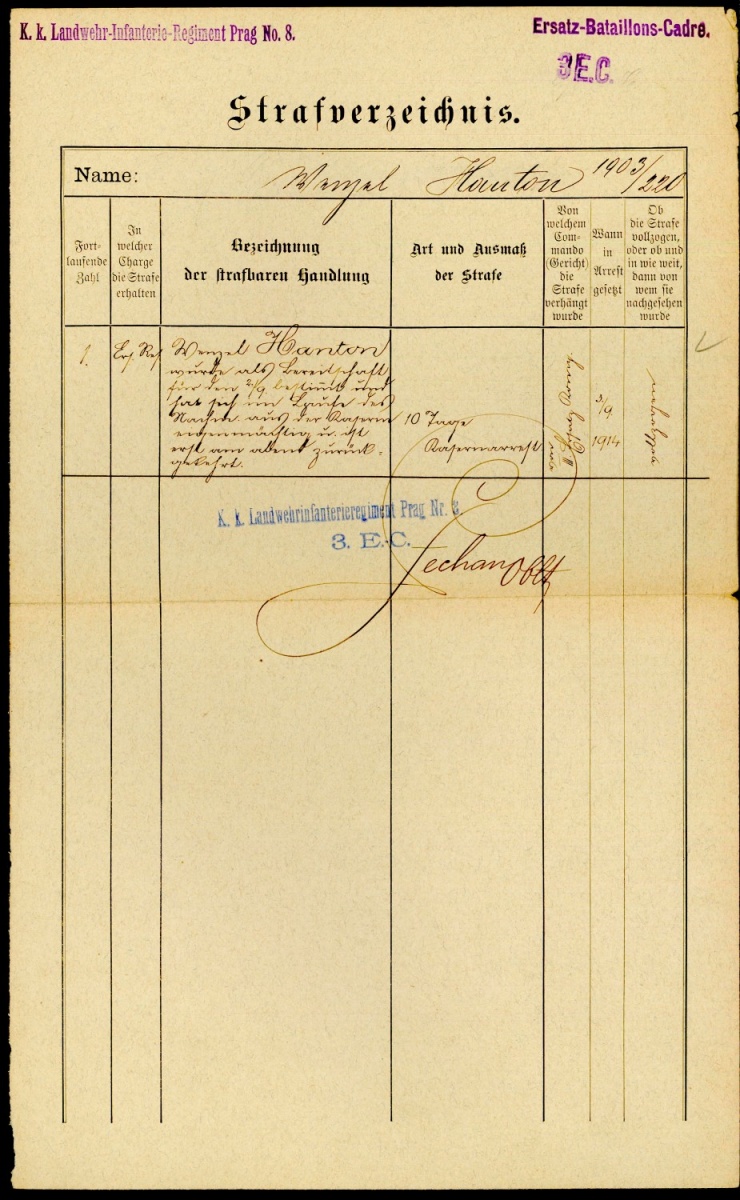 K. k. Landwehr-Infanterie-Regiment Prag No. 8.
Ersatz-Bataillons-Cadre.
3 E.C.
Strafverzeichnis.
Name: Wenzel Hanton 1903/220
Fort-
laufende
Zahl
In
welcher
Charge
die Strafe
erhalten
Bezeichnung
der strafbaren Handlung
Art und Ausmaß
der Strafe
Von
welchem
Com-
mando
(Gericht)
die
Strafe
verhängt
wurde
Wann
in
Arrest
gesetzt
Ob
die Strafe
vollzogen,
oder ob und
in wie weit,
dann von
wem sie
nachgesehen
wurde
1.
Ers. Res
Wenzel Hanton
wurde als Bereitschaft
für den 2/9 bestimt und
hat sich im Laufe des
Nachm. aus der Kaserne
eigenmächtig u. ist
erst am abend zurück-
gekehrt.
10 Tage
Kasernarrest
3/9.
1914
vollzogen
K. k. Landwehrinfanterieregiment Prag Nr. 8.
3. E.-C.
Oblt